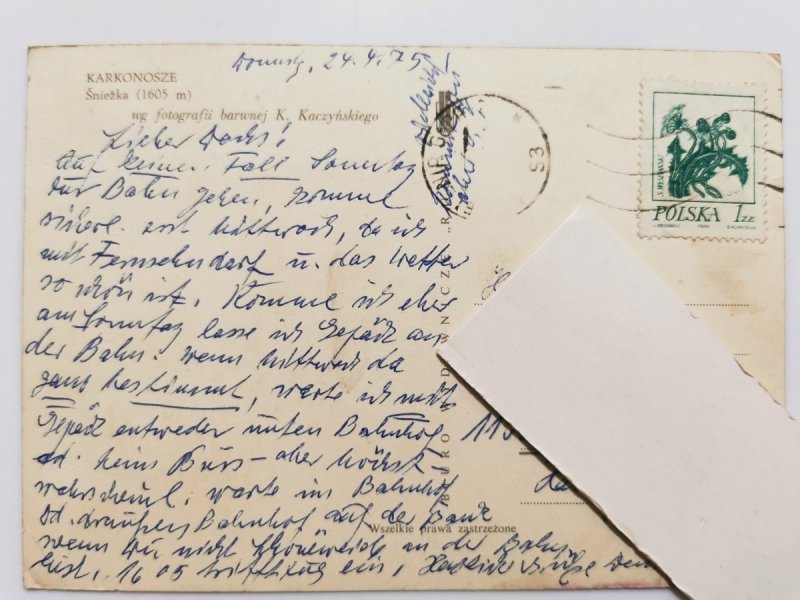 24.4.75
KARKONOSZE
Śnieżka (1605 m)
wg fotografii barwnej K. Kaczyńskiego
POLSKA 1 ZŁ
Lieber Dachs!
Auf keinen Fall Sonntag
zur Bahn gehen, komme
sicherl. erst Mittwoch, da ich
mit Fernsehn darf u. das Wetter
so schön ist. Komme ich eher
am Sonntag lasse ich Gepäck an
der Bahn. wenn Mittwoch da
ganz bestimmt, warte ich mit
Gepäck entweder unten Bahnhof
od. beim Büro - aber höchst-
wahrscheinl. warte im Bahnhof
od. draußen Bahnhof auf der Bank
wenn Du nicht an der Bahn
bist, 16 05 ein, Herzliche Grüße Dein
BIURO WYDAWNICZE „R
Wszelkie prawa zastrzeżone
93
115